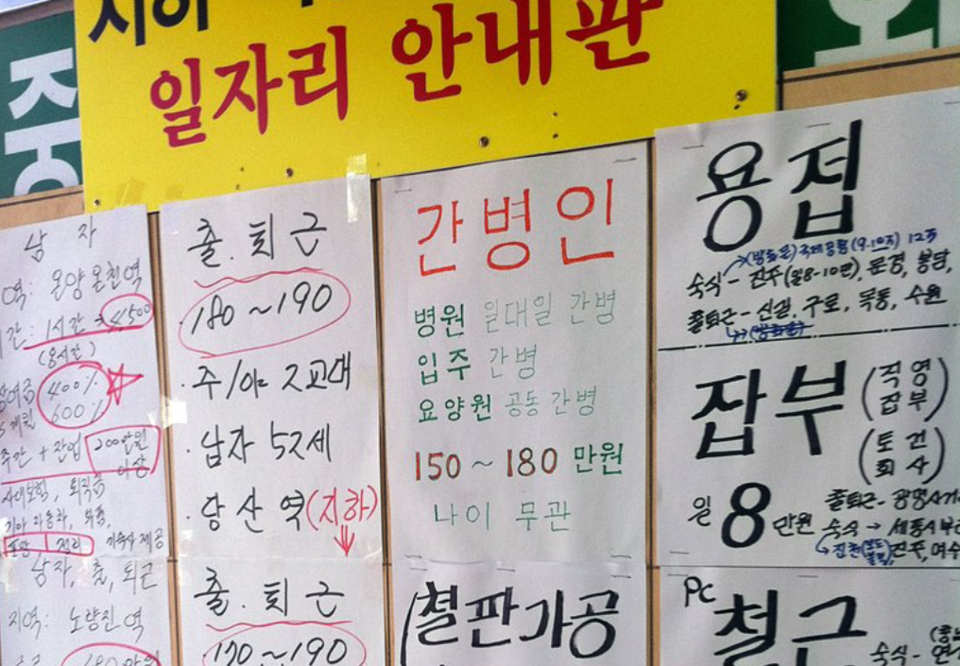 중
일자리 안내판
남자
역: 온양온천역
간: 1시간
(8시간)
400%
600%
주간 + 잔업 200만원
이상
사대보험, 퇴직금
기숙사 제공
남자, 출, 퇴근
지역: 노량진역
출. 퇴근
180~190
·주/야 2교대
·남자 52세
·당산역(지하)
출. 퇴근
170~190
간병인
병원 일대일 간병
입주 간병
요양원 공동 간병
150~180 만원
나이 무관
(철판가공
용접
숙식 - 진주(일8-10만), 문경, 봉담,
출퇴근 - 신길, 구로, 목동, 수원
잡부 (직영
잡부)
(토건
회사)
일 8 만원
출퇴근 - 광명사거
숙식 → 세종시부
진주, 여수
PC 철근
숙식 -